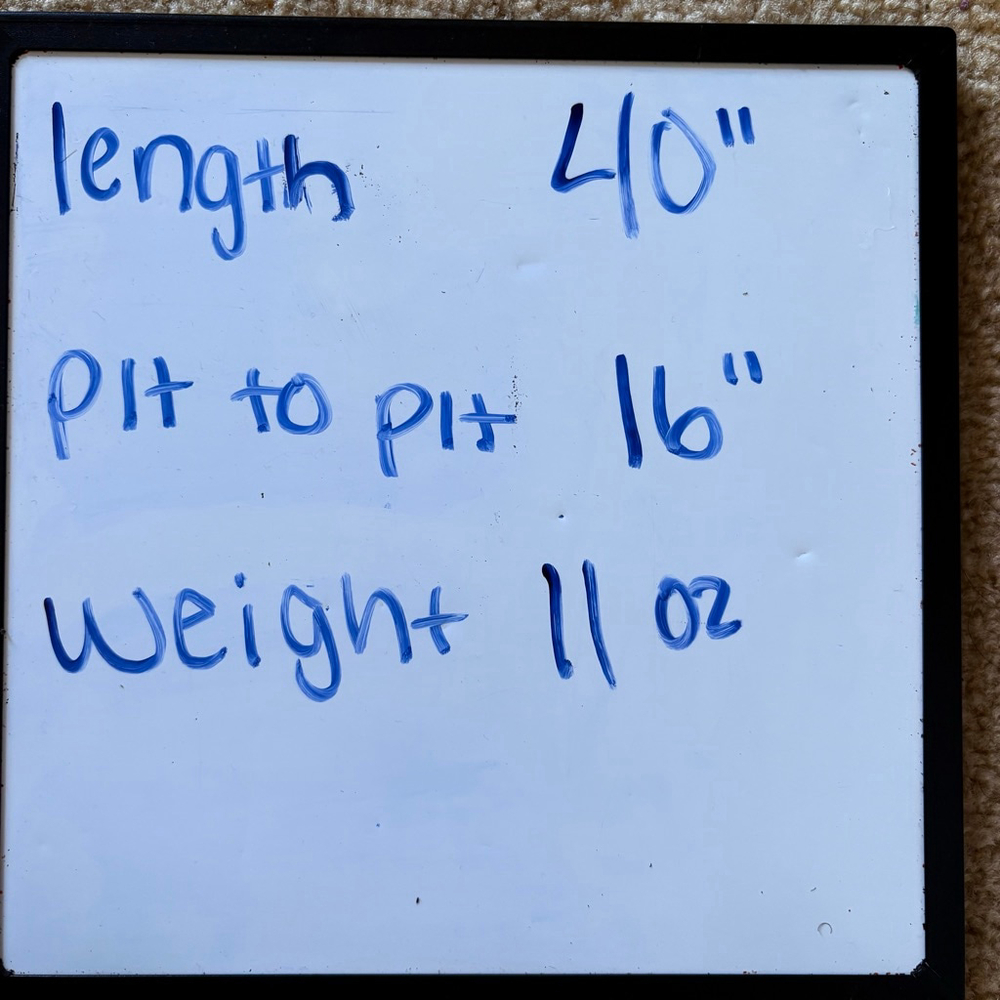 length 40"
pit to pit 16"
weight 11 oz